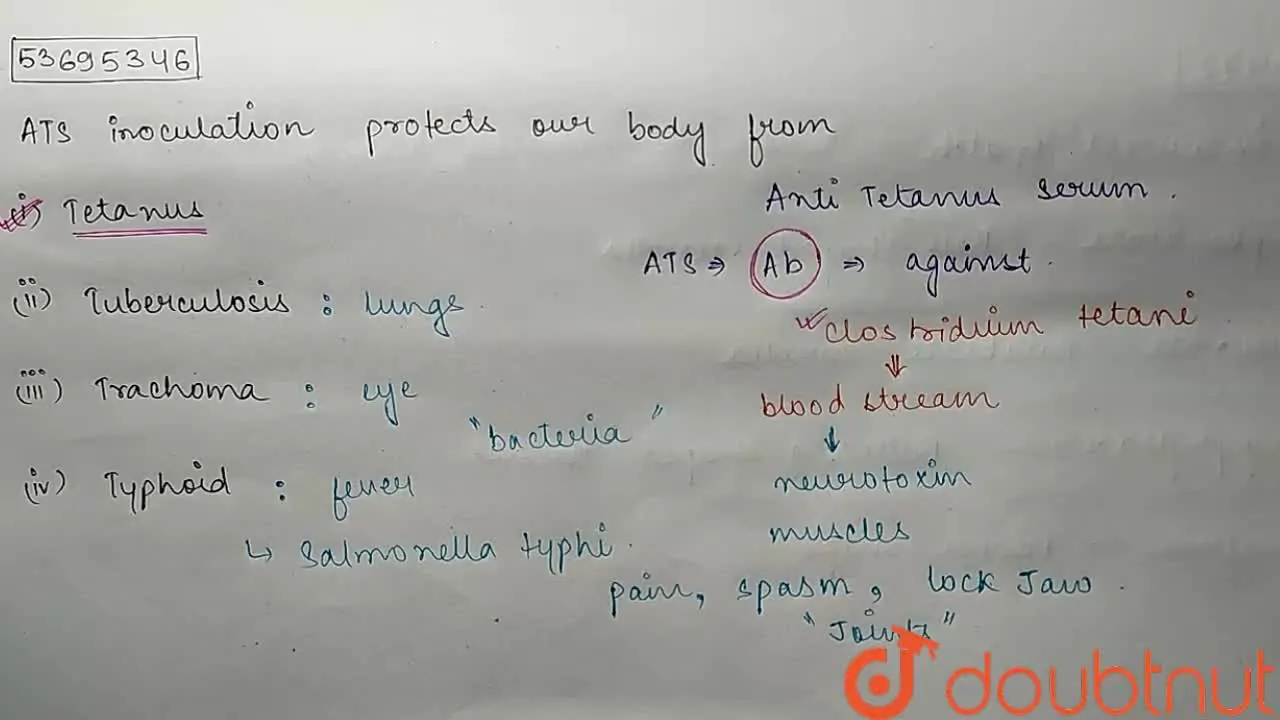 53695346
ATS inoculation protects our body from
(i) Tetanus
(ii) Tuberculosis : lungs.
(iii) Trachoma : eye
"bacteria"
(iv) Typhoid : fever
↳ Salmonella typhi.
Anti Tetanus Serum.
ATS ⇒ Ab ⇒ against.
Clostridium tetani
⇓
blood stream
↓
neurotoxin
muscles
pain, spasm, lock Jaw.
"Joints"
doubtnut